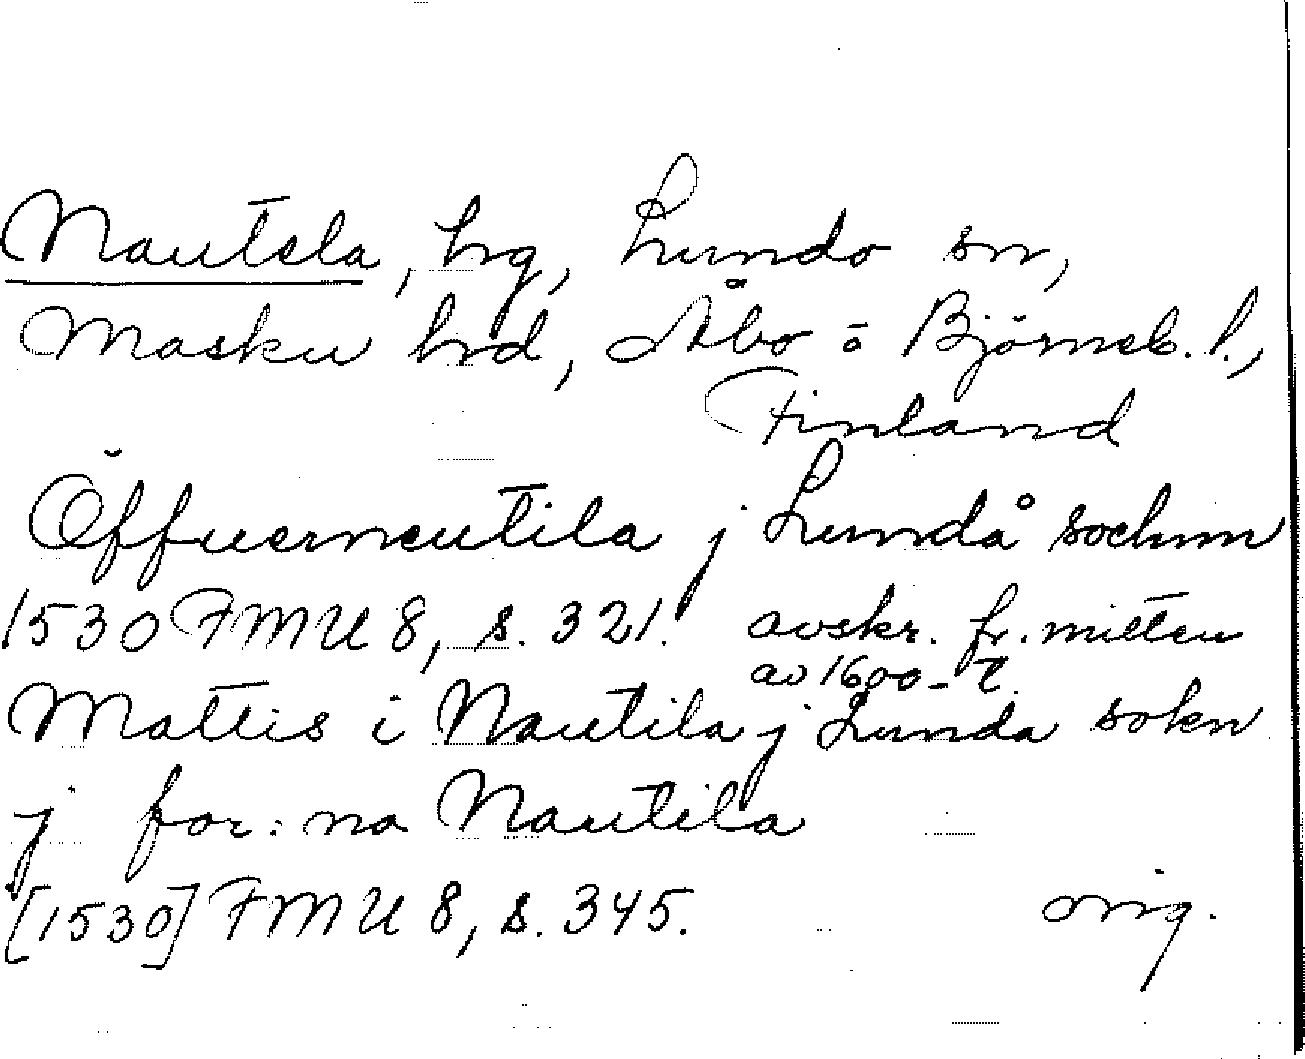 Nautela, hg, Lundo sn,
Masku hd, Åbo o Björneb. l.,
Finland
Öffuerneutila j Lundå sochnn
1530 FMU 8, s. 321. avskr. fr. mitten
av 1600-t.
Mattis i Nautila j Lunda sokn
j for: na Nautila
[1530] FMU 8, s. 345. orig.